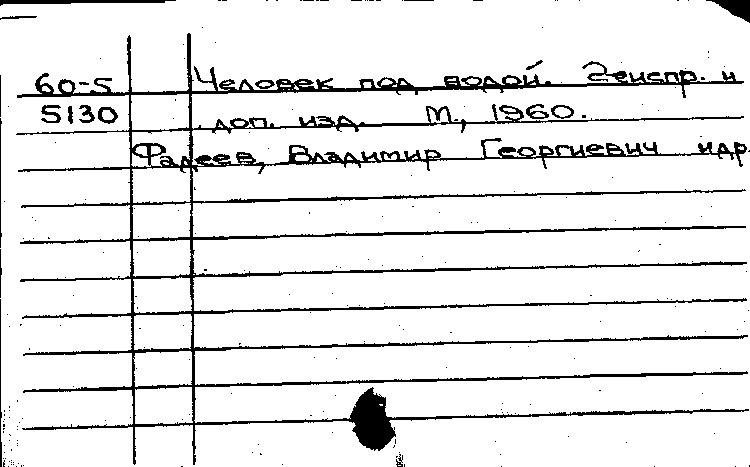 60-5 Человек под водой. 2е испр. и
5130 доп. изд. М., 1960.
Фадеев, Владимир Георгиевич и др